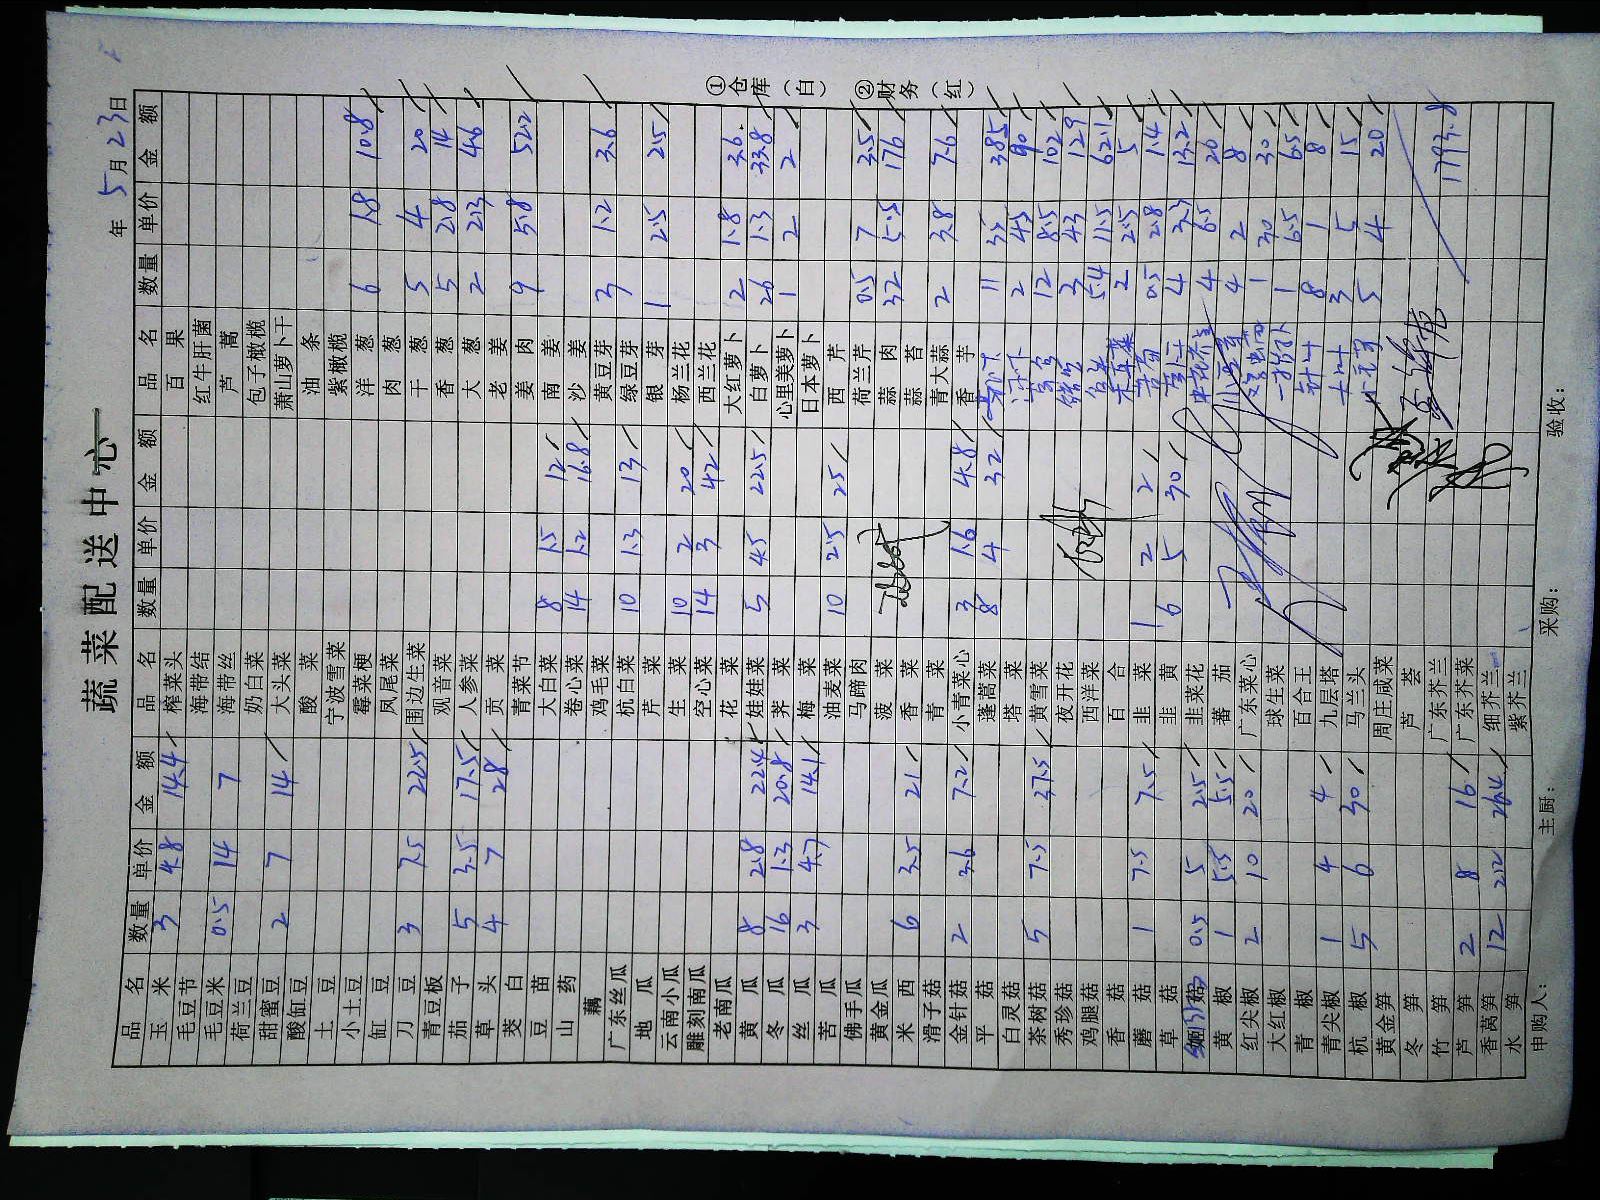 蔬菜配送中心
年 5月23日
品名 数量 单价 金额 品名 数量 单价 金额 品名 数量 单价 金额
玉米 3 4.8 14.4 榨菜头 百果
毛豆节 海带结 红牛肝菌
毛豆米 0.5 14 7 海带丝 芦蒿
荷兰豆 奶白菜 包子橄榄
甜蜜豆 2 7 14 大头菜 萧山萝卜干
酸缸豆 酸菜 油条
土豆 宁波雪菜 紫橄榄
小土豆 霉菜梗 洋葱 6 1.8 10.8
缸豆 凤尾菜 肉葱
刀豆 3 7.5 22.5 围边生菜 干葱 5 4 20
青豆板 观音菜 香葱 5 2.8 14
茄子 5 3.5 17.5 人参菜 大葱 2 2.3 4.6
草头 4 7 28 贡菜 老姜
茭白 青菜节 姜肉 9 5.8 52.2
豆苗 大白菜 8 1.5 12 南姜
山药 卷心菜 14 1.2 16.8 沙姜
藕 鸡毛菜 黄豆芽 3 1.2 3.6
广东丝瓜 杭白菜 10 1.3 13 绿豆芽
地瓜 芹菜 银芽 1 2.5 2.5
云南小瓜 生菜 10 2 20 杨兰花
雕刻南瓜 空心菜 14 3 42 西兰花
老南瓜 花菜 大红萝卜 2 1.8 3.6
黄瓜 8 2.8 22.4 娃娃菜 5 4.5 22.5 白萝卜 26 1.3 33.8
冬瓜 16 1.3 20.8 荠菜 心里美萝卜 1 2 2
丝瓜 3 4.7 14.1 梅菜 日本萝卜
苦瓜 油麦菜 10 2.5 25 西芹
佛手瓜 马蹄肉 荷兰芹 0.5 7 3.5
黄金瓜 菠菜 蒜肉 32 5.5 176
米西 6 3.5 21 香菜 蒜苔
滑子菇 青菜 青大蒜 2 3.8 7.6
金针菇 2 3.6 7.2 小青菜心 3 1.6 4.8 香芋
平菇 蓬蒿菜 8 4 32 11 35 385
白灵菇 塔菜 2 45 90
茶树菇 5 7.5 37.5 黄雪菜 12 8.5 102
秀珍菇 夜开花 3 43 129
鸡腿菇 西洋菜 5.4 11.5 62.1
香菇 百合 2 2.5 5
蘑菇 1 7.5 7.5 韭菜 1 2 2 0.5 2.8 1.4
草菇 韭黄 6 5 30 4 3.3 13.2
菇 0.5 5 2.5 韭菜花 4 20
黄椒 1 5.5 5.5 蕃茄 4 2 8
红尖椒 2 10 20 广东菜心 1 30 30
大红椒 球生菜 1 6.5 6.5
青椒 百合王 8 1 8
青尖椒 1 4 4 九层塔 3 5 15
杭椒 5 6 30 马兰头 5 4 20
黄金笋 周庄咸菜
冬笋 芦荟
竹笋 广东芥兰 1793.8
芦笋 2 8 16 广东芥菜
香莴笋 12 2.2 26.4 细芥兰
水笋 紫芥兰
申购人: 主厨: 采购: 验收:
①仓库(白) ②财务(红)